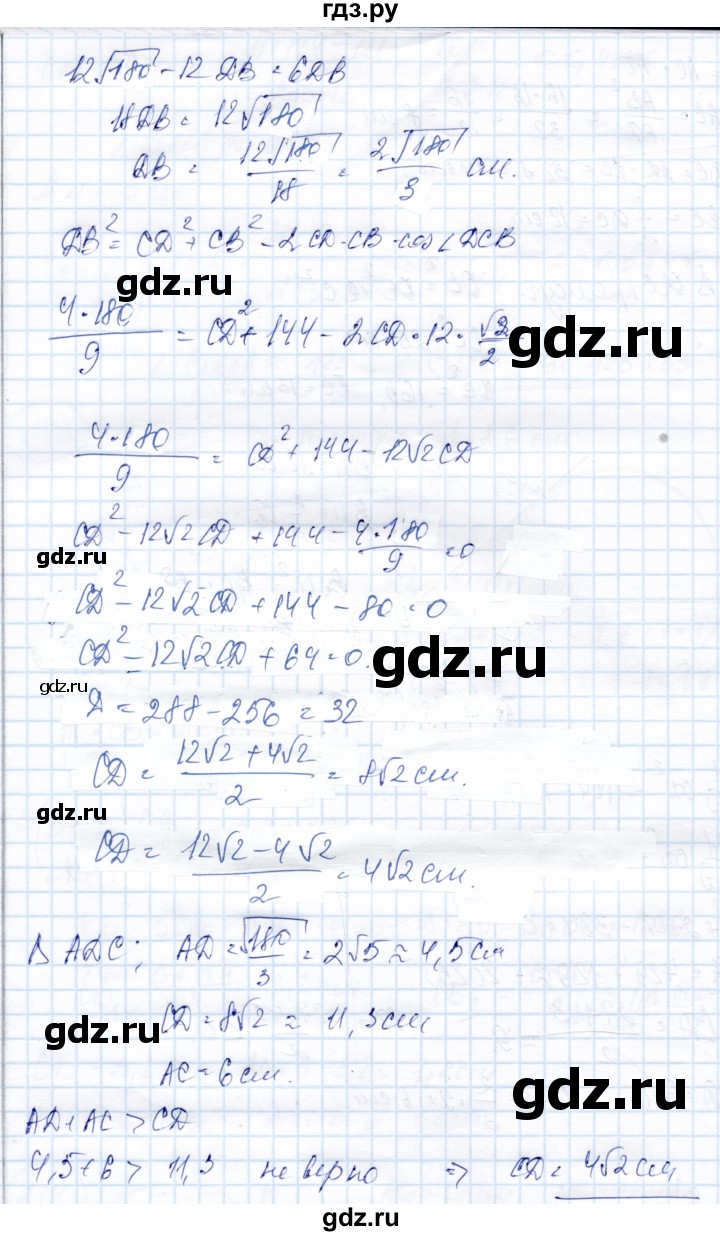 гдз.ру
12√180 - 12DB = 6DB
18DB = 12√180
DB = 12√180/18 = 2√180/3 см.
DB² = CD² + CB² - 2CD·CB·cos∠DCB
gdz.ru
4·180/9 = CD² + 144 - 2CD·12·√2/2
gdz.ru
4·180/9 = CD² + 144 - 12√2CD
CD² - 12√2CD + 144 - 4·180/9 = 0
gdz.ru
CD² - 12√2CD + 144 - 80 = 0
CD² - 12√2CD + 64 = 0.
gdz.ru
gdz.ru
D = 288 - 256 = 32
CD = 12√2 + 4√2/2 = 8√2 см.
gdz.ru
CD = 12√2 - 4√2/2 = 4√2 см.
Δ ADC; AD = √180/3 = 2√5 ≈ 4,5 см
gdz.ru
CD = 8√2 ≈ 11,3 см
AC = 6 см.
gdz.ru
AD + AC > CD
4,5 + 6 > 11,3 неверно ⇒ CD = 4√2 см
gdz.ru